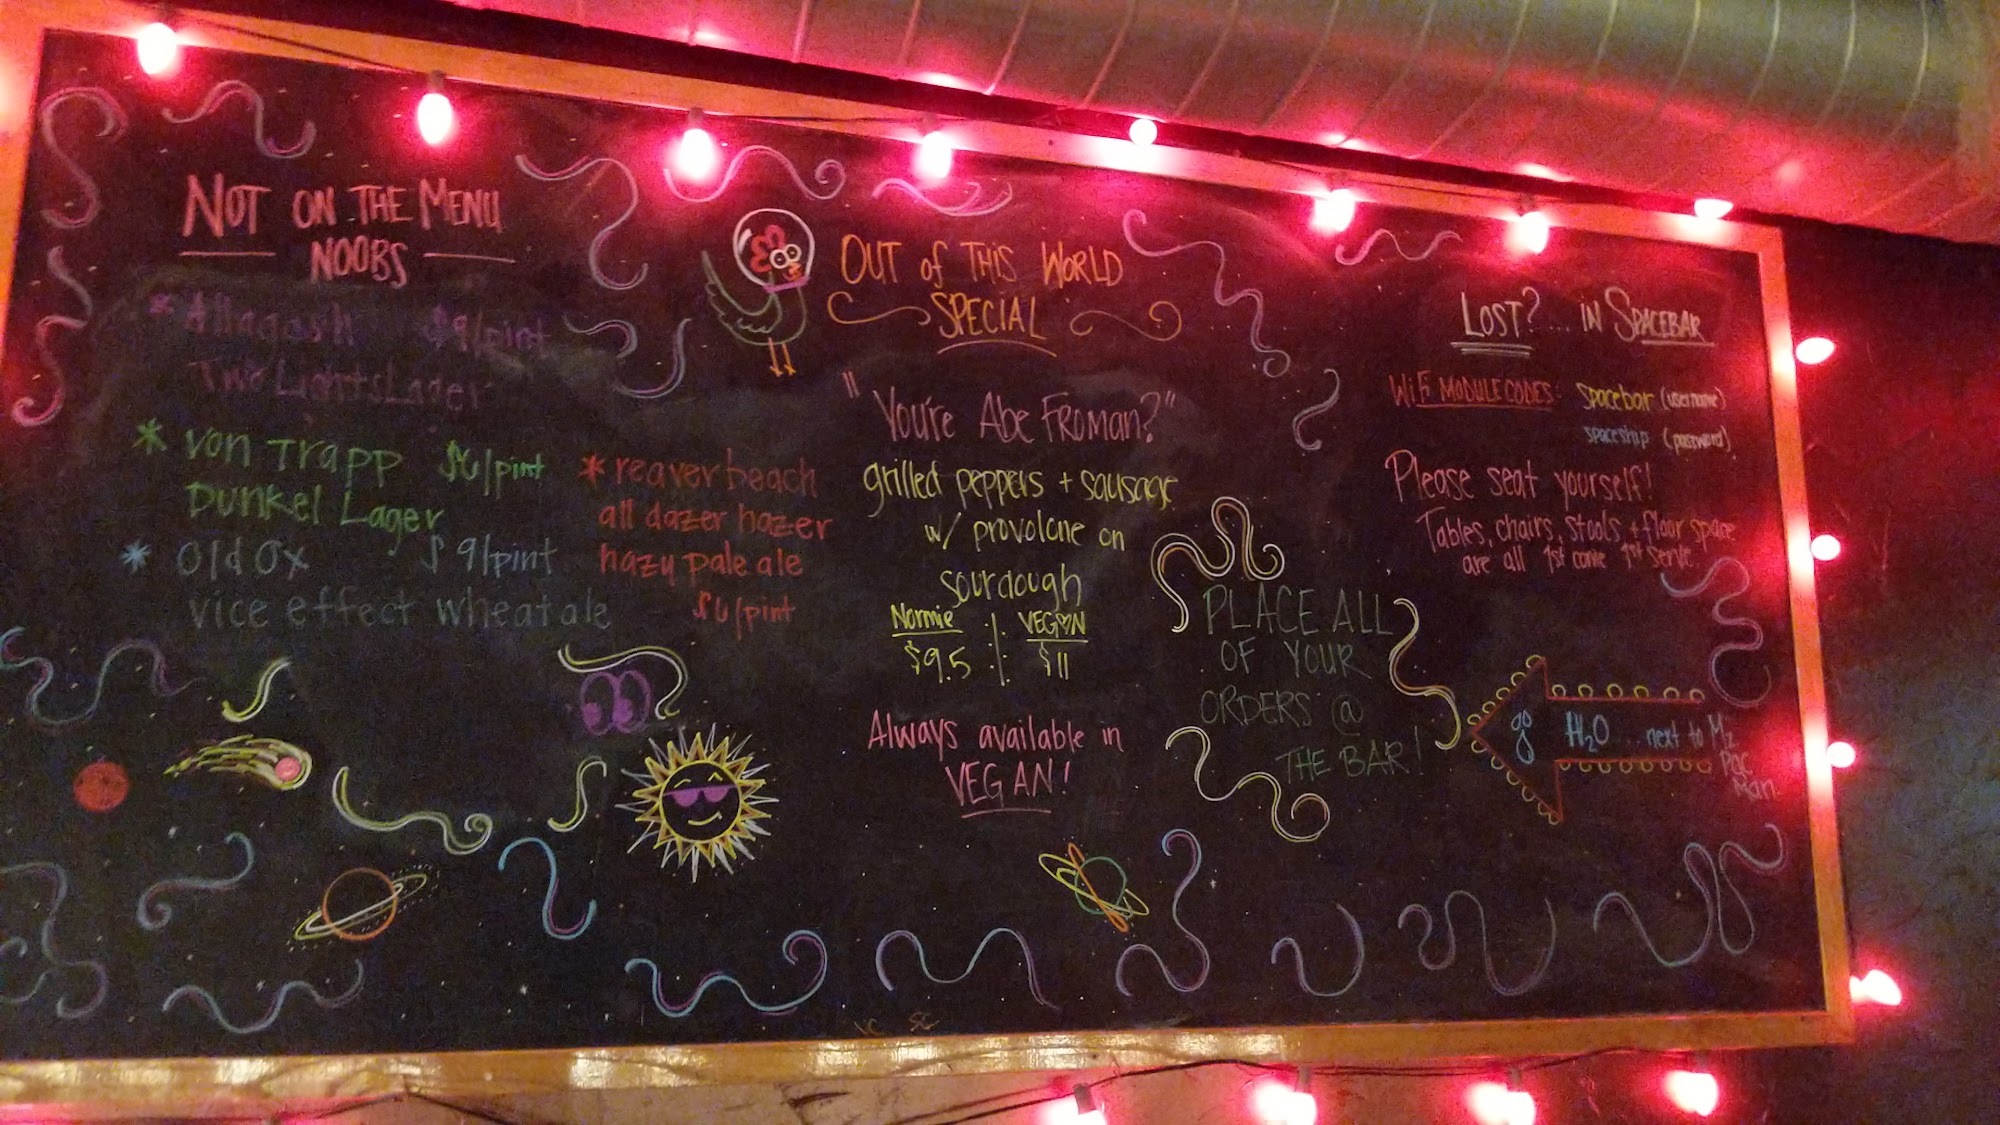 NOT ON THE MENU
NOOBS
* Allagash $9/pint
Two Lights Lager
* von Trapp $6/pint
Dunkel Lager
* Old Ox $9/pint
vice effect wheat ale
* reaver beach
all dazer hazer
hazy pale ale
$6/pint
OUT of THIS WORLD
SPECIAL
"You're Abe Froman?"
grilled peppers + sausage
w/ provolone on
sourdough
Normie VEGAN
$9.5 $11
Always available in
VEGAN!
PLACE ALL
OF YOUR
ORDERS @
THE BAR!
LOST?... IN SPACEBAR
WiFi MODULE CODES: spacebar (username)
spaceship (password)
Please seat yourself!
Tables, chairs, stools + floor space
are all 1st come 1st serve
go H2O ... next to Mz.
Pac
Man.